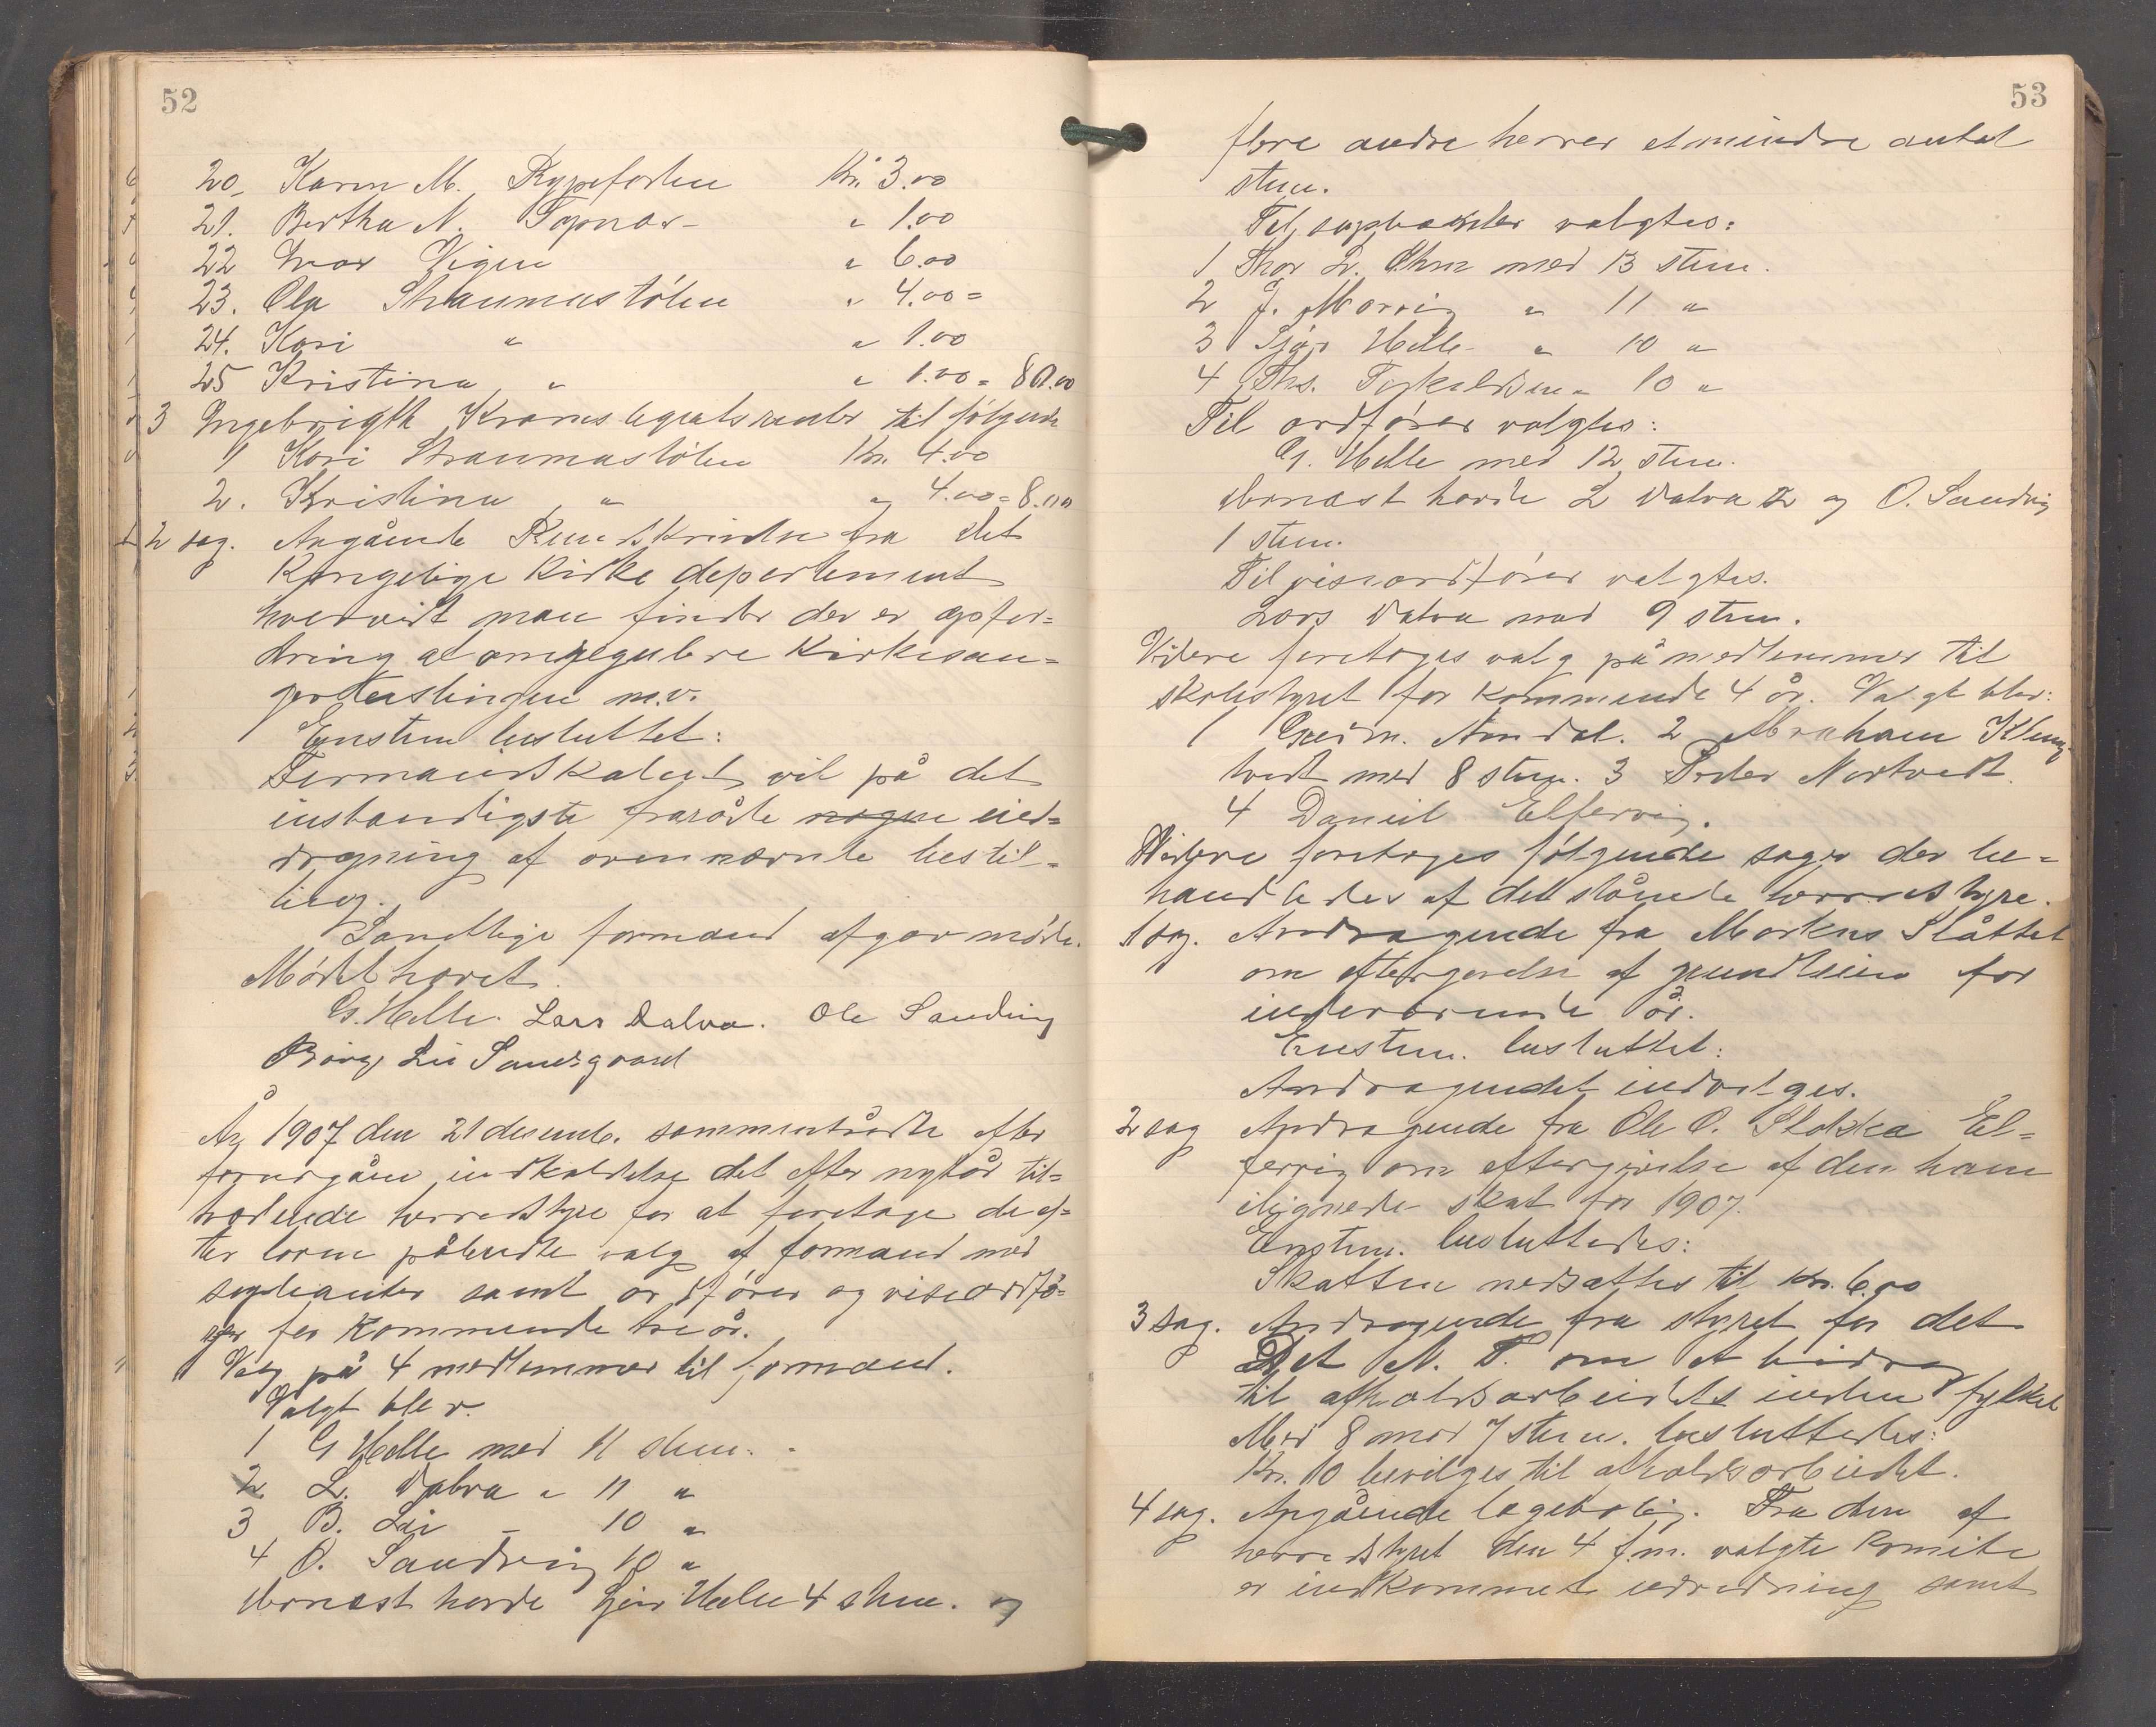 52
20. Karen M. Rypefosten Kr. 3.00
21. Bertha N. Topnas " 1.00
22 Ivar Vigen " 6.00
23. Ola Straumastølen " 4.00 =
24. Kari " " 1.00
25 Kristina " " 1.00 = 80.00
3 Ingebrigth Krams legats renter til følgende
1 Kari Straumastølen Kr. 4.00
2. Kristina " " 4.00 = 8.00
2 sag. Angående Rundskrivelse fra det
Kongelige Kirke departement
hvorvidt man finder der er opfor=
dring at omregulere Kirkesan=
gerbestlingen m.v.
Enstem besluttet:
Formandskabet vil på det
instændigste fraråde nogen ind=
dragning af ovennævnte bestil=
ling.
Samtlige formænd afgav møde.
Mødet hævet.
G. Helle. Lars Dalva. Ole Sandvig
Børge Lii Søndergaard
År 1907 den 21 desemb. sammentrådte efter
foregåen indkaldelse det efter nytår til=
trædende herredstyre for at foretage de ef=
ter loven påbudte valg af formænd med
supleanter samt ordfører og viseordfø=
rer for kommende tre år.
Valg på 4 medlemmer til formænd.
Valgt blev.
1 G Helle med 11 stem.
2 L. Dalva " 11 "
3 B. Lii - 10 "
4 O. Sandvig 10 "
dernæst havde Sjur Helle 4 stem. og
53
flere andre herrer et mindre antal
stem.
Til supleanter valgtes:
1 Thor L. med 13 stem.
2 J. Morvig " 11 "
3 Sjur Helle " 10 "
4 Ths. Torkildsen " 10 "
Til ordfører valgtes:
G. Helle med 12 stem.
dernæst havde L Dalva 2 og O. Sandvig
1 stem.
Til viseordfører valgtes.
Lars Dalva med 9 stem.
Videre foretoges valg på medlemmer til
skolestyret for kommende 4 år. Valgt blev:
1 Gudm. Amdal. 2 Abraham Klung=
tvedt med 8 stem. 3 Peder Nortvedt.
4 Daniel Elfervig.
Videre foretoges følgende sager der be=
handledes af det stående herredstyre.
1 sag. Andragende fra Markus Slåttet
om eftergivelse af grundleien for
indeværende år.
Enstem. besluttet:
Andragendet indvilges.
2 sag Andragende fra Ole O. Stokka El=
fervig om eftergivelse af den ham
ilignede skat for 1907.
Enstem. besluttedes:
Skatten nedsættes til Kr. 6.00
3 sag. Andragende fra styret for det
Det N. T. om et bidrag
til afholdsarbeidets inden fylket
Med 8 mod 7 stem. besluttedes:
Kr. 10 bevilges til afholdsarbeidet.
4 sag. Angående lægebolig. Fra den af
herredstyret den 4 f.m. valgte komite
er indkommet udredning samt